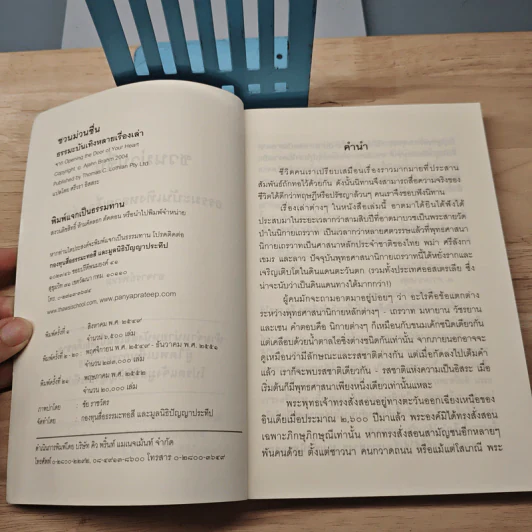 ชวนม่วนชื่น
ธรรมะบันเทิงหลายเรื่องเล่า
จาก Opening the Door of Your Heart
Copyright © Ajahn Brahm 2004
Published by Thomas C. Lothian Pty Ltd.
แปลโดย ศรีวรา อิสสระ
พิมพ์แจกเป็นธรรมทาน
สงวนลิขสิทธิ์ ห้ามคัดลอก ตัดตอน หรือนำไปพิมพ์จำหน่าย
หากท่านใดประสงค์จะพิมพ์แจกเป็นธรรมทาน โปรดติดต่อ
กองทุนสื่อธรรมะทอสี และมูลนิธิปัญญาประทีป
www.thawsischool.com, www.panyaprateep.com
พิมพ์ครั้งที่ ๑ สิงหาคม พ.ศ. ๒๕๔๙
พฤศจิกายน พ.ศ. ๒๕๔๙ - ธันวาคม พ.ศ. ๒๕๕๑
พฤษภาคม พ.ศ. ๒๕๕๒
จำนวน ๒๐,๐๐๐ เล่ม
ภาพปกโดย ชัย ราชวัตร
จัดทำโดย กองทุนสื่อธรรมะทอสี และมูลนิธิปัญญาประทีป
ดำเนินการพิมพ์โดย บริษัท คิว พริ้นท์ แมเนจเม้นท์ จำกัด
คำนำ
ชีวิตคนเราเปรียบเสมือนเรื่องราวมากมายที่ประสาน
สัมพันธ์ถักทอไว้ด้วยกัน ดังนั้นนิทานจึงสามารถสื่อความจริงของ
ชีวิตได้ดีกว่าทฤษฎีหรือปรัชญาล้วนๆ คนเราจึงชอบฟังนิทาน
เรื่องเล่าต่างๆ ในหนังสือเล่มนี้ อาตมาได้ยินได้ฟังได้
ประสบมาในระยะเวลากว่าสามสิบปีที่อาตมาบวชเป็นพระสายวัด
ป่าในนิกายเถรวาท เป็นเวลากว่าหลายศตวรรษแล้วที่พุทธศาสนา
นิกายเถรวาทเป็นศาสนาหลักประจำชาติของไทย พม่า ศรีลังกา
เขมร และลาว ปัจจุบันพุทธศาสนานิกายเถรวาทนี้ได้หยั่งรากและ
เจริญเติบโตในดินแดนตะวันตก (รวมทั้งประเทศออสเตรเลีย ซึ่ง
น่าจะนับว่าเป็นดินแดนทางใต้มากกว่า!)
ผู้คนมักจะถามอาตมาอยู่บ่อยๆ ว่า อะไรคือข้อแตกต่าง
ระหว่างพุทธศาสนานิกายหลักต่างๆ - เถรวาท มหายาน วัชรยาน
และเซน คำตอบคือ นิกายต่างๆ ก็เหมือนกับขนมเค้กชนิดเดียวกัน
แต่เคลือบด้วยน้ำตาลไอซิ่งต่างชนิดกันเท่านั้น จากภายนอกอาจจะ
ดูเหมือนว่ามีลักษณะและรสชาติต่างกัน แต่เมื่อกัดลงไปเต็มคำ
แล้ว เราก็จะพบรสชาติเดียวกัน - รสชาติแห่งความเป็นอิสระ เมื่อ
เริ่มต้นก็มีพุทธศาสนาเพียงหนึ่งเดียวเท่านั้นแหละ
พระพุทธเจ้าทรงสั่งสอนอยู่ทางตะวันออกเฉียงเหนือของ
อินเดียเมื่อประมาณ ๒,๖๐๐ ปีมาแล้ว พระองค์มิได้ทรงสั่งสอน
เฉพาะภิกษุภิกษุณีเท่านั้น หากทรงสั่งสอนสามัญชนอีกหลายๆ
พันคนด้วย ตั้งแต่ชาวนา คนกวาดถนน หรือแม้แต่โสเภณี พระ